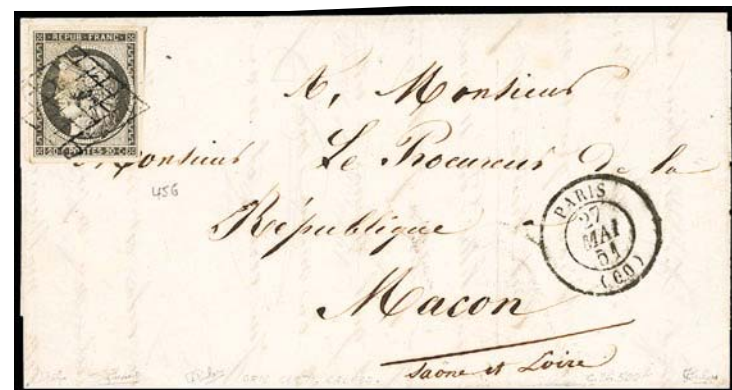 REPUB·FRANC·
20·C·POSTES·20·C
A, Monsieur
Monsieur Le Procureur De la
456
République
Macon
Saône et Loire
PARIS
27
MAI
51
(60)